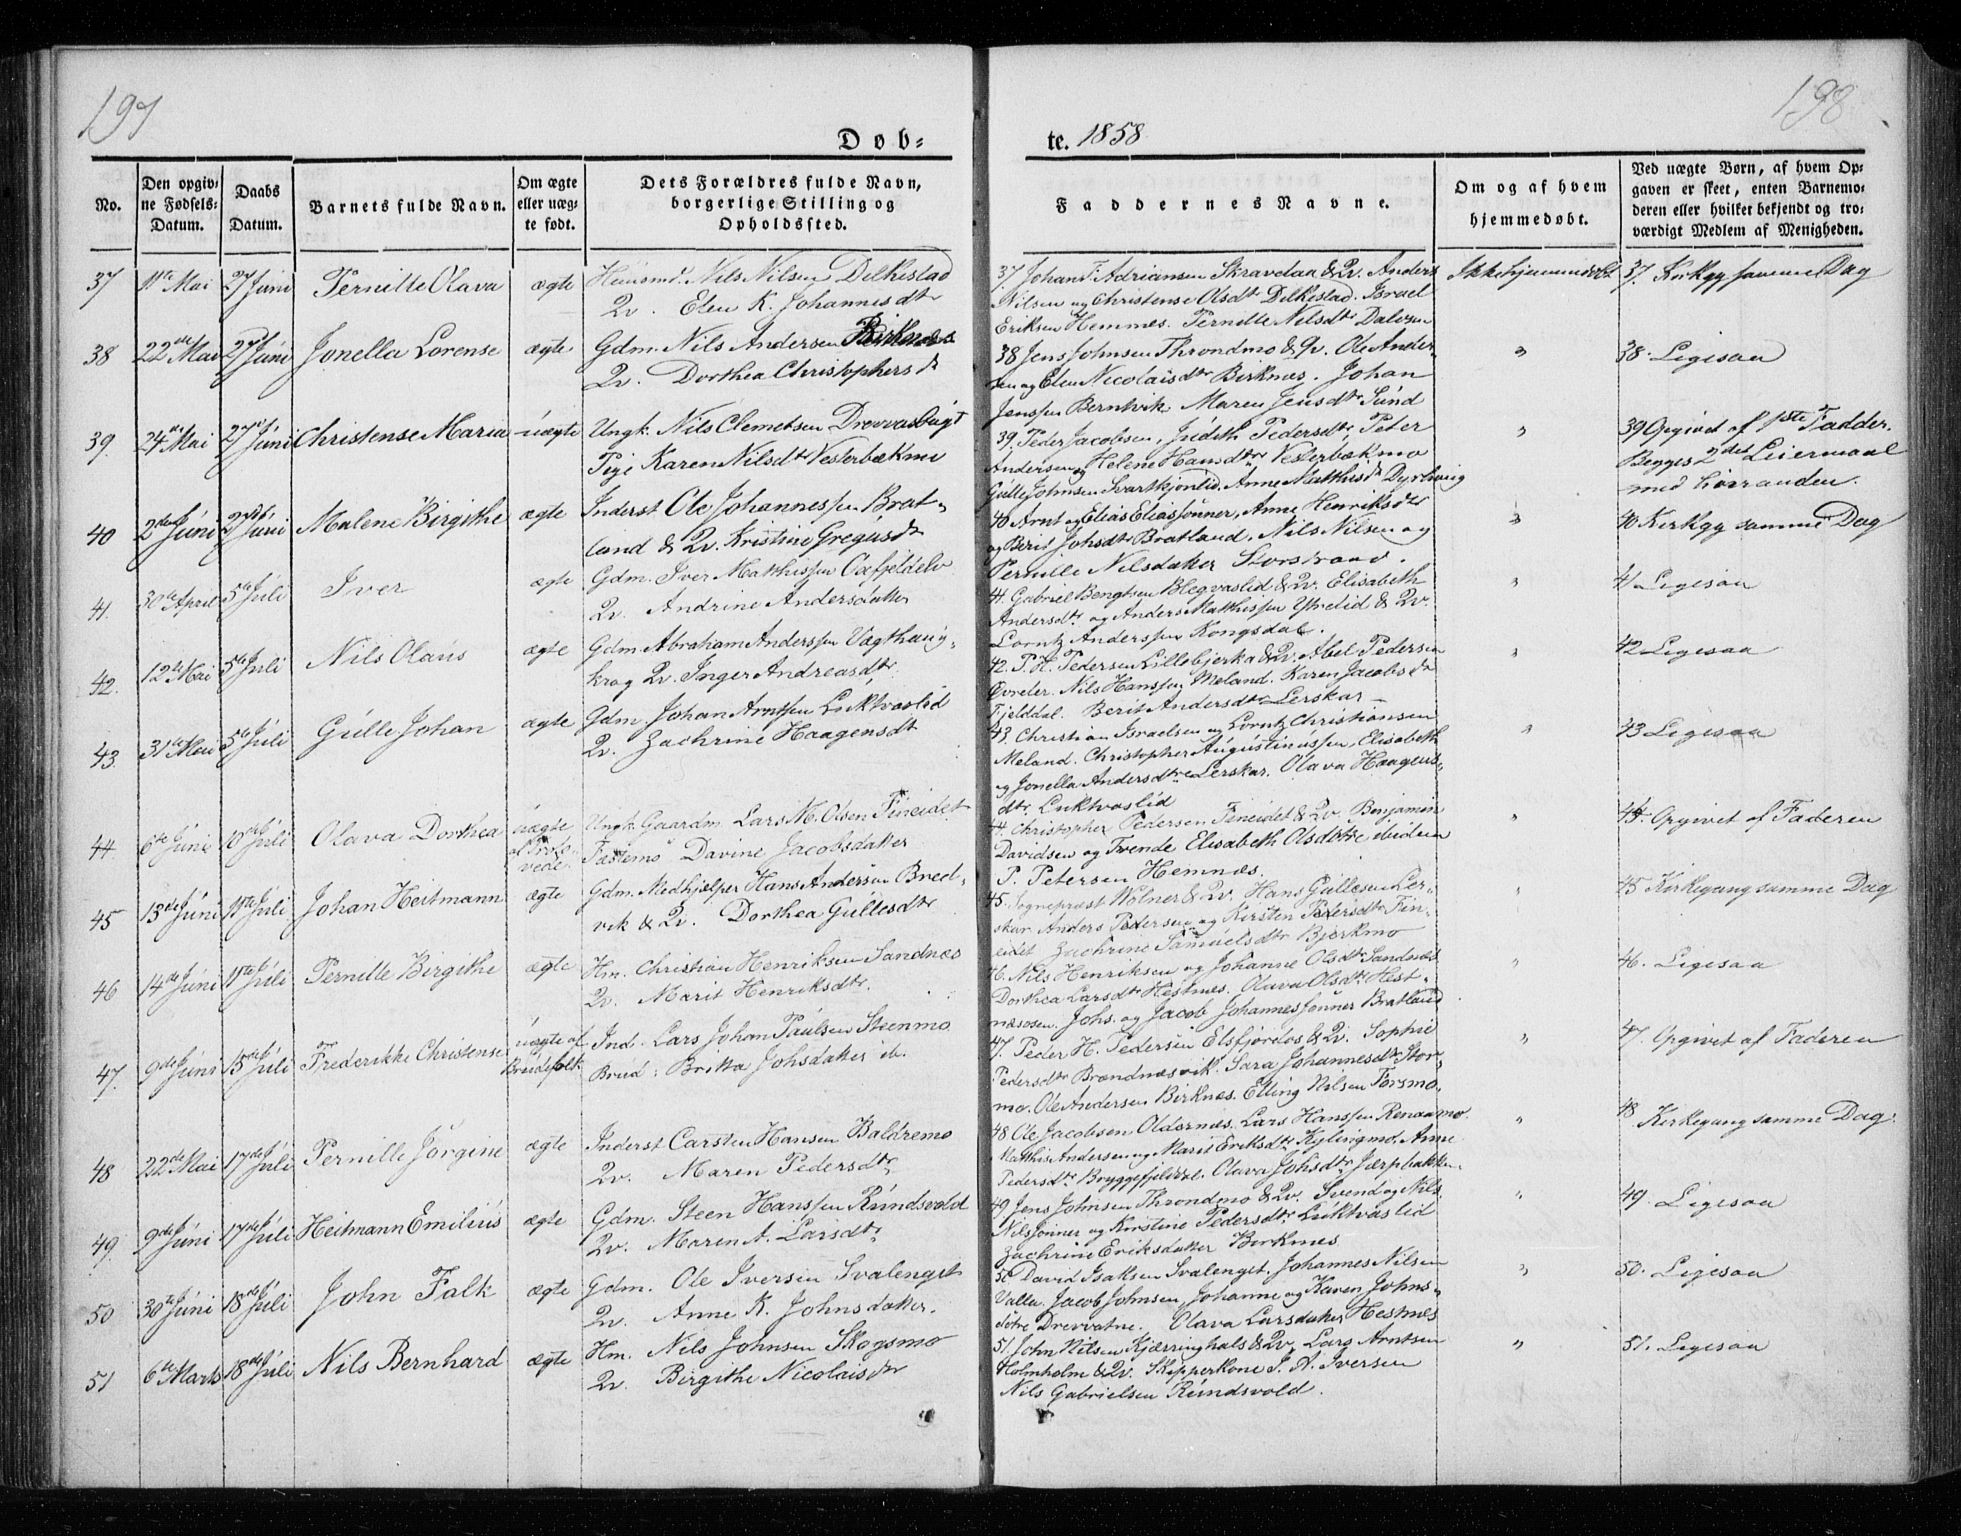 197
198
Døb-
te. 1858
No.
Den opgiv-
ne Fødsels-
Datum.
Daabs
Datum.
Barnets fulde Navn.
Om ægte
eller uæg-
te født.
Dets Forældres fulde Navn,
borgerlige Stilling og
Opholdssted.
Faddernes Navne.
Om og af hvem
hjemmedøbt.
Ved uægte Børn, af hvem Op-
gaven er skeet, enten Barnemo-
deren eller hvilket bekjendt og tro-
værdigt Medlem af Menigheden.
37 11te Mai 27 Juni Pernille Olava ægte Huusmd. Nils Nilsen Dilkestad
Qv. Elen K. Johannisdtr
37. Johan F. Adriansen Skravdaa & Qv. Anders
Nilsen og Christense Olsdtr Dilkestad. Israel
Eriksen Hemmes. Pernille Nilsdtr Dalosen
Ikke hjemmedøbt
37. Kirkeg samme Dag
38 22de Mai 27 Juni Jonella Lorense ægte Gdm. Nils Andersen Birknes
Qv. Dorthea Christophersd
38 Jens Johnsen Throndmo & Qv. Ole Ander-
sen og Elen Nicolaisdtr Birknes. Johan
Jenssen Berntvik Maren Jensdtr Sund
"
38. Ligesaa
39. 24de Mai 27 Juni Christense Maria uægte Ungk. Nils Clemetsen Drevvas
Pige Karen Nilsdtr Vesterbækmo
39. Peder Jacobsen, Judith Pedersdtr, Peter
Andersen og Helene Hansdtr Vesterbækmo
Gulle Johnsen Svartkjønlid. Anne Matthisd Dyrhaug
"
39 Opgivet af 1ste Fadder.
Begges 2det Leiermaal
med hinanden.
40 2den Juni 27de Juni Malene Birgithe ægte Inderst Ole Johannessen Brat-
land & Qv. Kristine Gregusd
40 Arnt og Elias Eliassønner, Anne Henriksdtr
og Berit Johsdtr Bratland. Nils Nilsen og
Pernille Nilsdatter Storstrand.
"
40 Kirkeg samme Dag
41. 30te April 5te Juli Iver ægte Gdm. Iver Matthissen Oxfjeldelv
Qv. Andrine Andersdatter
41. Gabriel Bengtsen Blegvaslid & Qv. Elisabeth
Andersdtr og Anders Matthissen Ytrelid & Qv.
Lorntz Anderssen Kongsdal.
"
41 Ligesaa
42. 12te Mai 5te Juli Nils Olaus ægte Gdm Abraham Anderssen Vagthaug-
krog Qv. Inger Andreasdtr
42. P. H. Pedersen Lillebjerka & Qv. Abel Pedersen
Øvreler. Nils Hanssen Meland. Karen Jacobsd
Fjelddal. Berit Andersdtr Lerskar
"
42 Ligesaa
43. 31te Mai 5te Juli Gulle Johan ægte Gdm. Johan Arntsen Luktvaslid
Qv. Zachrine Haagensdt
43. Christian Israelsen og Lorntz Christiansen
Meland. Christopher Augustinussen, Elisabeth
og Jonella Andersdtre Lerskar. Olava Haagens-
dtr Luktvaslid
"
43 Ligesaa
44. 6te Juni 10de Juli Olava Dorthea uægte
af Trolo-
vede.
Ungk. Gaardm. Lars M. Olsen Fineidet
Fæstemø Davine Jacobsdatter
44. Christopher Pedersen Fineidet & Qv. Benjamin
Davidsen og Trende Elisabeth Olsdtre
P. Petersen Hemnæs.
"
44. Opgivet af Faderen
45 13de Juni 11te Juli Johan Heitmann ægte Gdm. Medhjælper Hans Andersen Bred-
vik & Qv. Dorthea Gullesdtr
45. Sogneprest Wolner & Qv. Hans Gullesen Ler-
skar Anders Pedersen og Kirsten Pedersdtr Fin-
eidet Zachrine Samuelsdtr Bjerkmo
"
45 Kirkegang samme Dag
46 14de Juni 11te Juli Pernille Birgithe ægte Hm. Christian Henriksen Sandnes
Qv. Marit Henriksdtr.
46. Nils Henriksen og Johanne Olsdtr Sandnes
Dorthea Larsdtr Hestnes. Olava Olsdtr Hest-
næsosen. Johs. og Jacob Johannessønner Bratland
"
46. Ligesaa
47. 9de Juni 15de Juli Frederikke Christense uægte af
Brudefolk
Ind. Lars Johan Paulsen Steenmo
Brud: Britta Johsdatter ib.
47. Peder H. Pedersen Elsfjordos & Qv. Sophie
Pedersdtr Brændnæsvik. Sara Johannesdtr Stor-
mo. Ole Andersen Birknes. Elling Nilsen Forsmo.
"
47. Opgivet af Faderen
48 22de Mai 17de Juli Pernille Jørgine ægte Inderst Carsten Hansen Baldremo
Qv. Maren Pedersdtr
48 Ole Jacobsen Oldernes. Lars Hanssen Renaamo.
Matthis Andersen og Marit Eriksdtr Kylingmo. Anne
Pedersdtr Bryggefjeldal. Olava Johsdtr Jærpbakken.
"
48 Kirkegang samme Dag.
49. 9de Juni 17de Juli Heitmann Emilius ægte Gdm. Steen Hanssen Rundsvold
Qv. Maren A. Larsdtr
49 Jens Johnsen Throndmo & Qv. Svend og Nils
Nilssønner og Kirstine Pedersdtr Luktvaslid
Zachrine Eriksdatter Birknes
"
49. Ligesaa
50 30te Juni 18de Juli John Falk ægte Gdm. Ole Iversen Svalenget
Qv. Anne K. Johnsdatter.
50 David Isaksen Svalenget. Johannes Nilsen
Valla. Jacob Johnsen, Johanne og Karen Johns-
døtre Drevvatne. Olava Larsdatter Hestnes
"
50. Ligesaa
51 6te Marts 18de Juli Nils Bernhard ægte Hm. Nils Johnsen Skogsmo
Qv. Birgithe Nicolaisdtr
51. John Nilsen Kjærringhals & Qv. Lars Arntsen
Holmholm & Qv. Skipperkone J. A. Iversen
Nils Gabrielsen Rundsvold.
"
51. Ligesaa